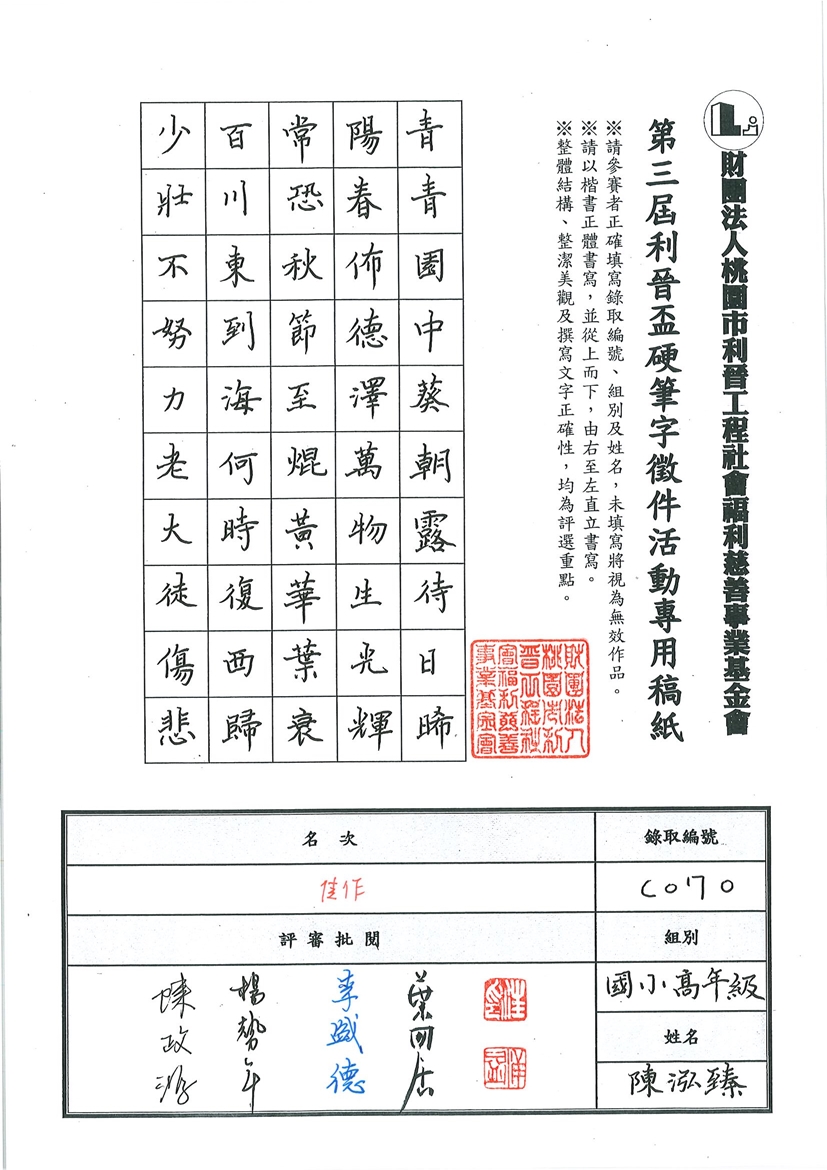 財團法人桃園市利晉工程社會福利慈善事業基金會
第三屆利晉盃硬筆字徵件活動專用稿紙
※請參賽者正確填寫錄取編號、組別及姓名，未填寫將視為無效作品。
※請以楷書正體書寫，並從上而下，由右至左直立書寫。
※整體結構、整潔美觀及撰寫文字正確性，均為評選重點。
財團法人
桃園市利
晉工程社
會福利慈善
事業基金會
青青園中葵朝露待日晞
陽春佈德澤萬物生光輝
常恐秋節至焜黃華葉衰
百川東到海何時復西歸
少壯不努力老大徒傷悲
錄取編號
C0170
組別
國小高年級
姓名
陳泓臻
名次
佳作
評審批閱
李盛德
楊勢年